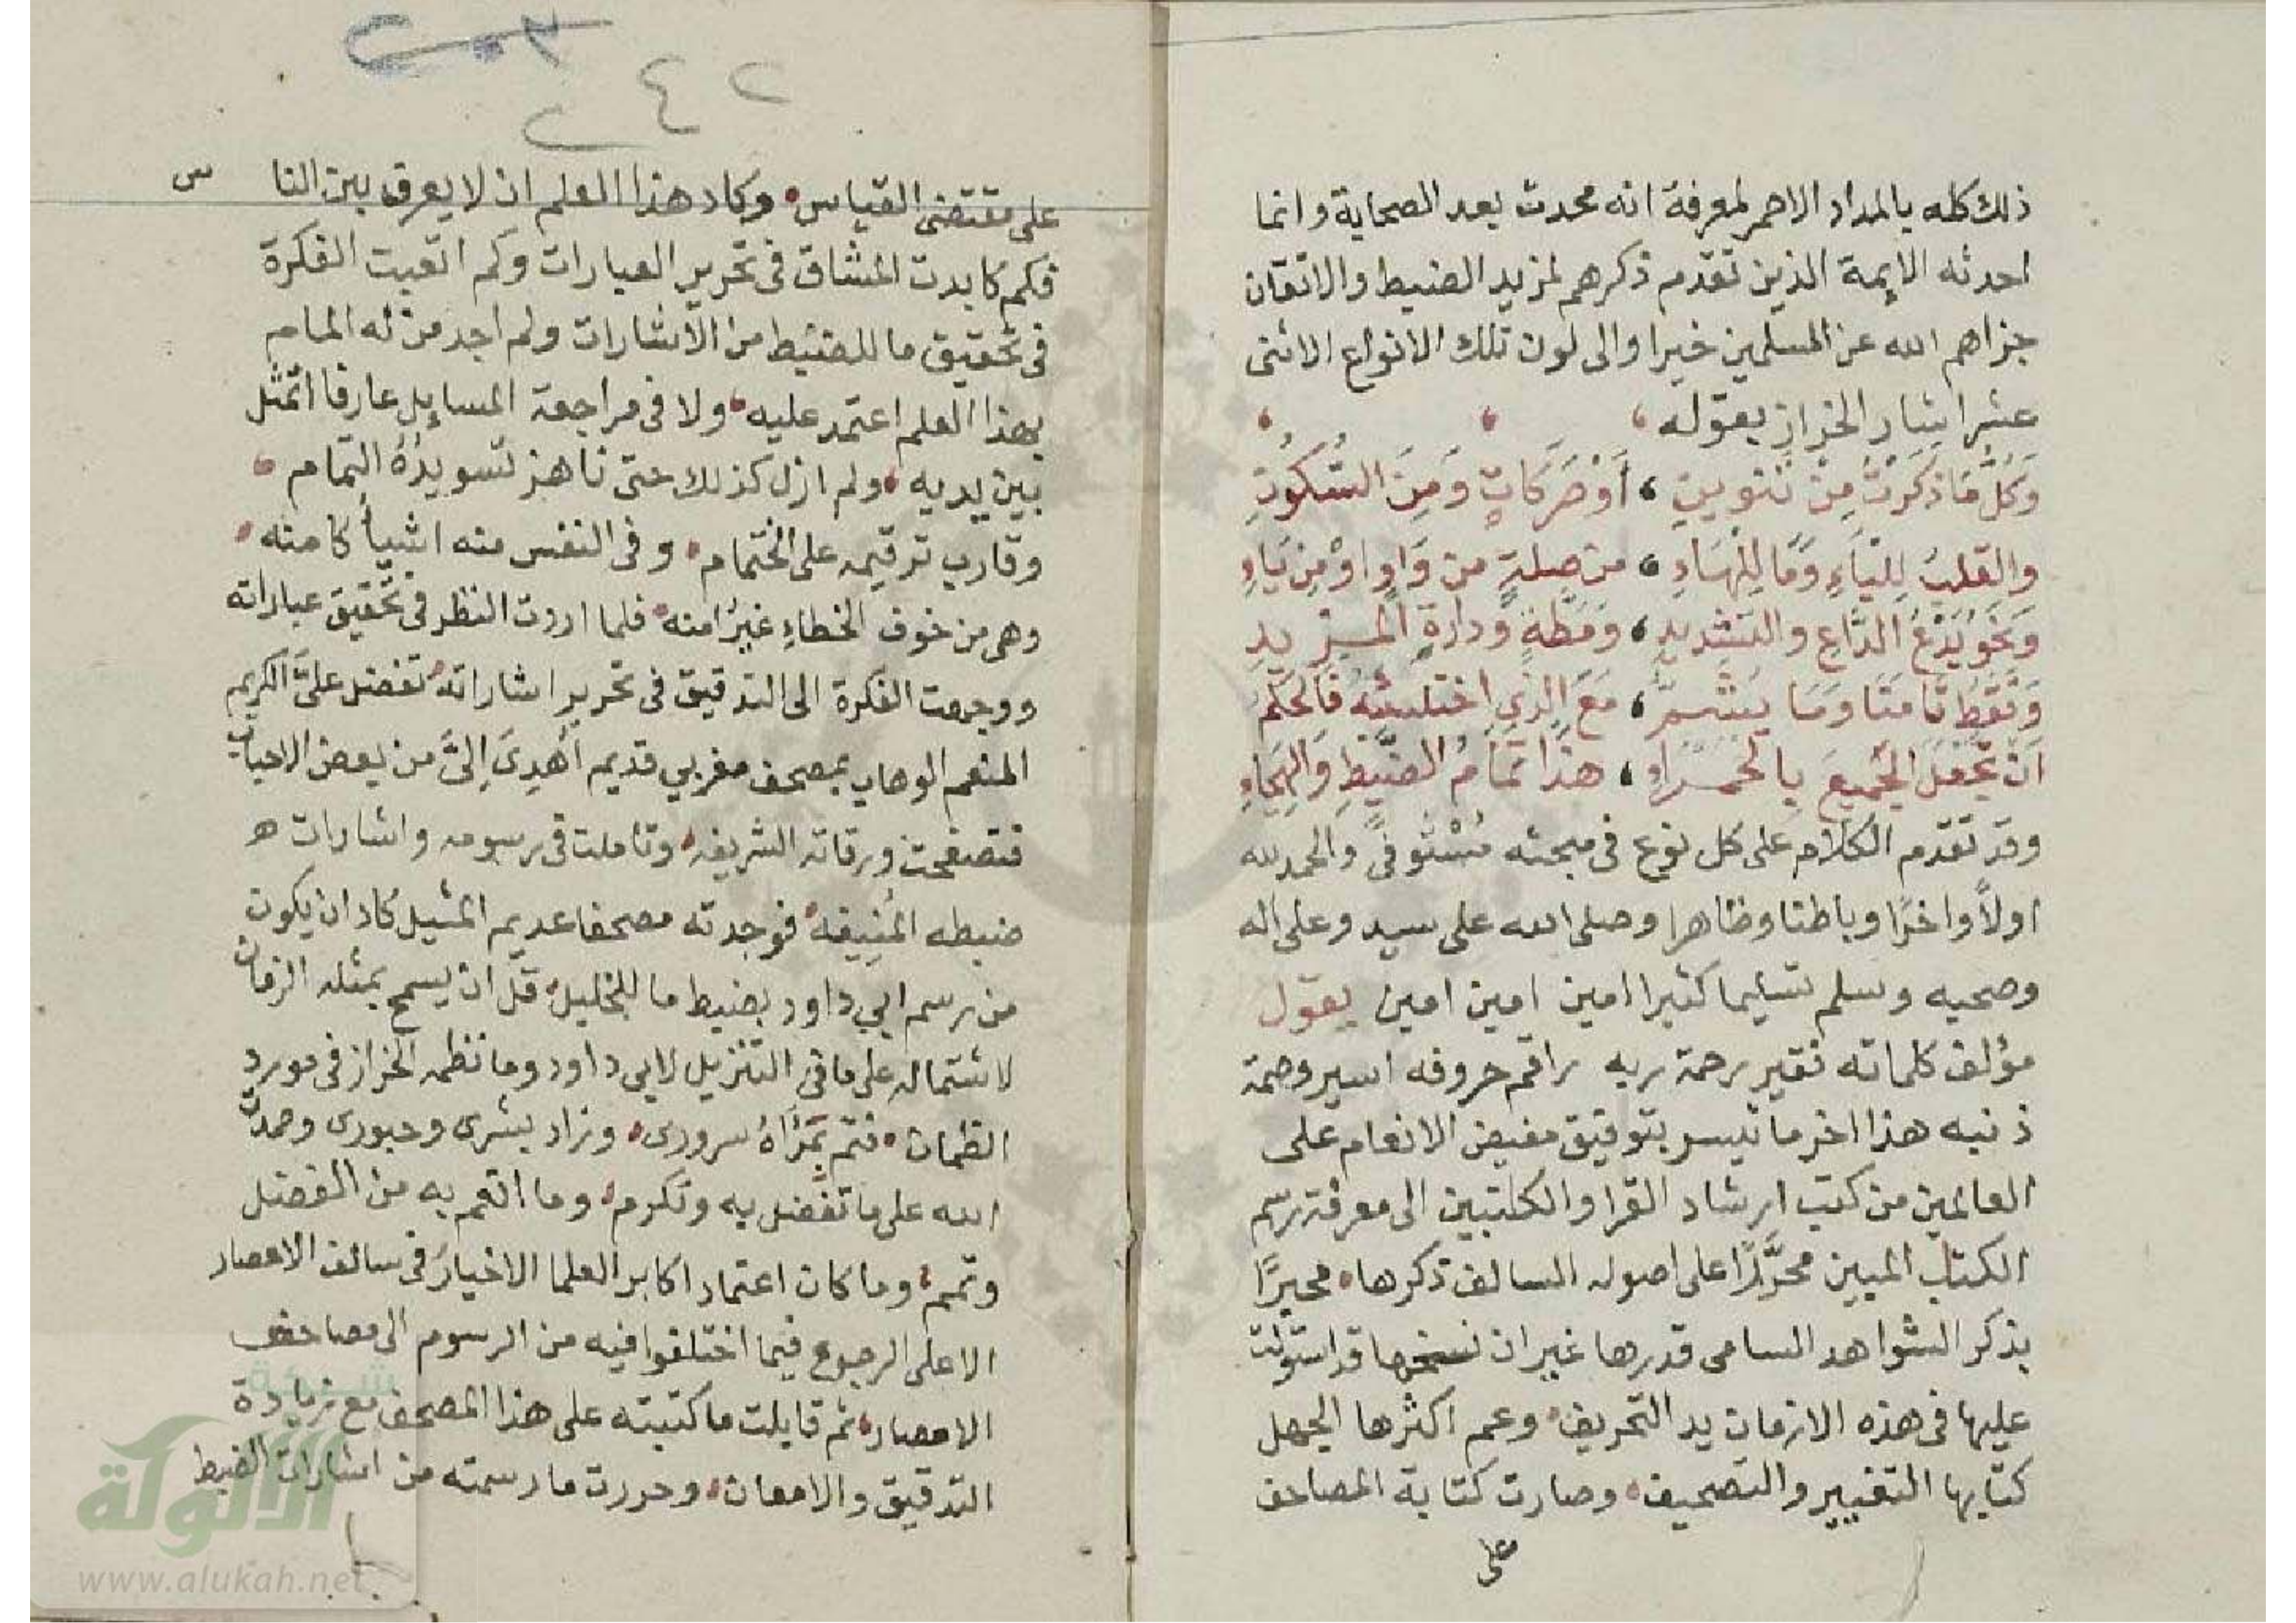 ذلك كله بالمداد الاحمر لمعرفة انه محدث بعد الصحابة وانما
احدثه الايمة الذين تقدم ذكرهم لمزيد الضبط والاتقان
جزاهم الله عن المسلمين خيرا والى لون تلك الانواع الاثنى
عشر اشار الخراز بقوله
وَكُلُّ مَا ذَكَرْتُ مِنْ تَنْوِينِ ، أَوْ حَرَكَاتٍ وَمِنَ السُّكُونِ
والقَلْبُ لِلْيَاءِ وَمَا لِلْهَاءِ ، من صِلَةٍ من وَاوٍ اوْ مِن يَاءِ
وَنَحْوِ يَدْعُ الدَّاعِ والتشديدِ ، وَمَطَّةٍ وَدارةِ المزيدِ
وَنَقْطِ تَامَنَّا وَمَا يُشَمُّ ، مَعَ الذي اختلسته فالحكم
اَنْ تَجْعَلَ الجميعَ بِالحَمْرَاءِ ، هذا تمامُ الضبطِ والهِجَاءِ
وقد تقدم الكلام على كل نوع فى مبحثه مُسْتَوفىً والحمد لله
اولاً واخرًا وباطنا وظاهرا وصلى الله على سيد وعلى اله
وصحبه وسلم تسليما كثيرا امين امين امين يقول
مؤلف كلماته فقير رحمة ربه راقم حروفه اسير وصمة
ذنبه هذا اخر ما تيسر بتوفيق مفيض الانعام على
العالمين من كتب ارشاد القرا والكاتبين الى معرفة رسم
الكتاب المبين محرَّرًا على اصوله السالف ذكرها محبرًا
بذكر الشواهد السامى قدرها غير ان نسخها قد استولت
عليها فى هذه الازمان يد التحريف وعم اكثرها الجهل
كتابها التغيير والتصحيف وصارت كتابة المصاحف
على
٢٤٢
على مقتضى القياس وكاد هذا العلم ان لا يعرف بين النا س
فكم كابدت المشاق فى تحرير العبارات وكم اتعبت الفكرة
فى تحقيق ما للضبط من الاشارات ولم اجد من له المام
بهذا العلم اعتمد عليه ولا فى مراجعة المسايل عارفا اتمثل
بين يديه ولم ازل كذلك حتى ناهز تسويدُهُ التمام
وقارب ترقيمه على الختمام وفى النفس منه اشيأ كامنه
وهى من خوف الخطاءِ غيرُ امنه فلما اردت النظر فى تحقيق عباراته
ووجهت الفكرة الى التدقيق فى تحرير اشاراته تفضل علىَّ الكريم
المنعم الوهاب بمصحف مغربي قديم اُهْدِىَ اِلىَّ من بعض الاحباب
فتصفحت ورقاته الشريفه وتاملت فى رسومه واشارات
ضبطه المُنِيفه فوجدته مصحفا عديم المثيل كاد ان يكون
من رسم ابي داود بضبط ما للخليل قل ان يسمح بمثله الزمان
لاشتماله على ما فى التنزيل لابي داود وما نظمه الخراز فى مورد
الظمان فتم بمَرْاَهُ سرورى وزاد بشرى وحبورى وحمدت
الله على ما تفضل به وتكرم وما انعم به من الفضل
وتمم وما كان اعتماد اكابر العلما الاخيار فى سالف الاعصار
الا على الرجوع فيما اختلفوا فيه من الرسوم الى مصاحف
الامصار ثم قابلت ما كتبته على هذا المصحف مع زيادة
التدقيق والامعان وحررت ما رسمته من اشارات الضبط
شبكة
الألوكة
www.alukah.net